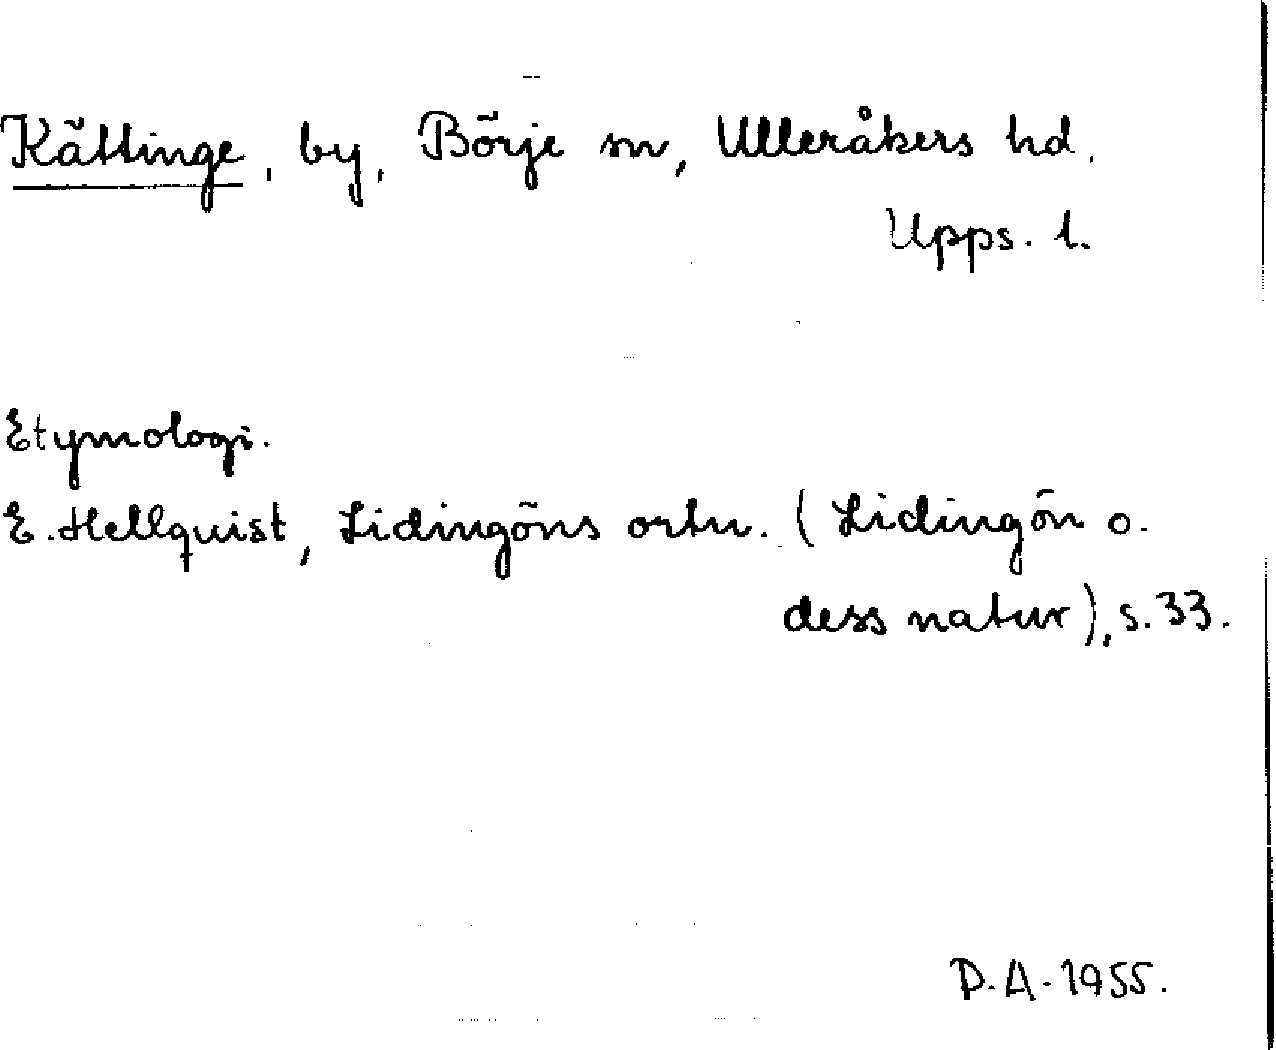 Kättinge, by, Börje sn, Ulleråkers hd,
Upps. l.
Etymologi.
E. Hellquist, Lidingöns ortn. (Lidingön o.
dess natur), s. 33.
D. A. 1955.